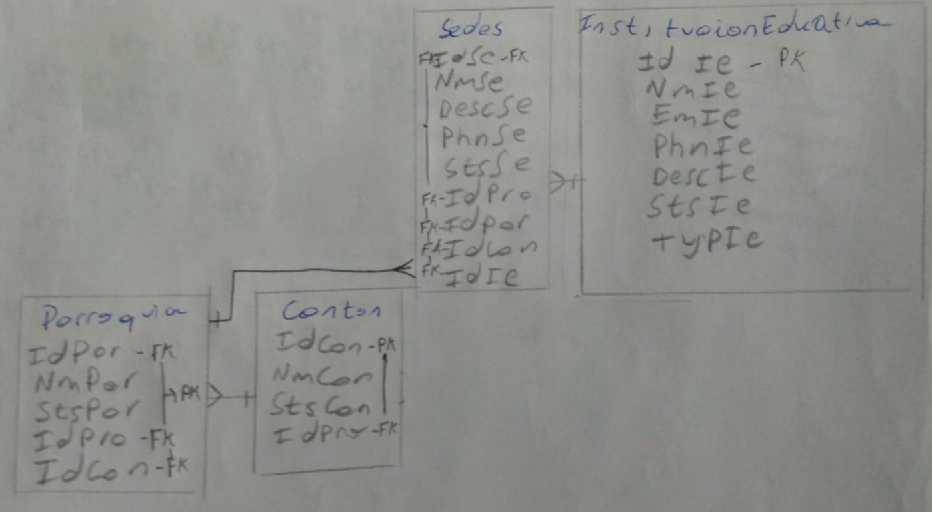 Sedes
FK IdSe-FK
NmSe
DescSe
PhnSe
StsSe
FK-IdPro
FK-IdPar
FK-IdCan
FK IdIe
InstitucionEducativa
Id Ie - PK
NmIe
EmIe
PhnIe
DescIe
StsIe
typIe
Parroquia
IdPar - FK
NmPar
StsPar
PK
IdPro - FK
IdCan - FK
Canton
IdCan - PK
NmCan
StsCan
IdPro - FK